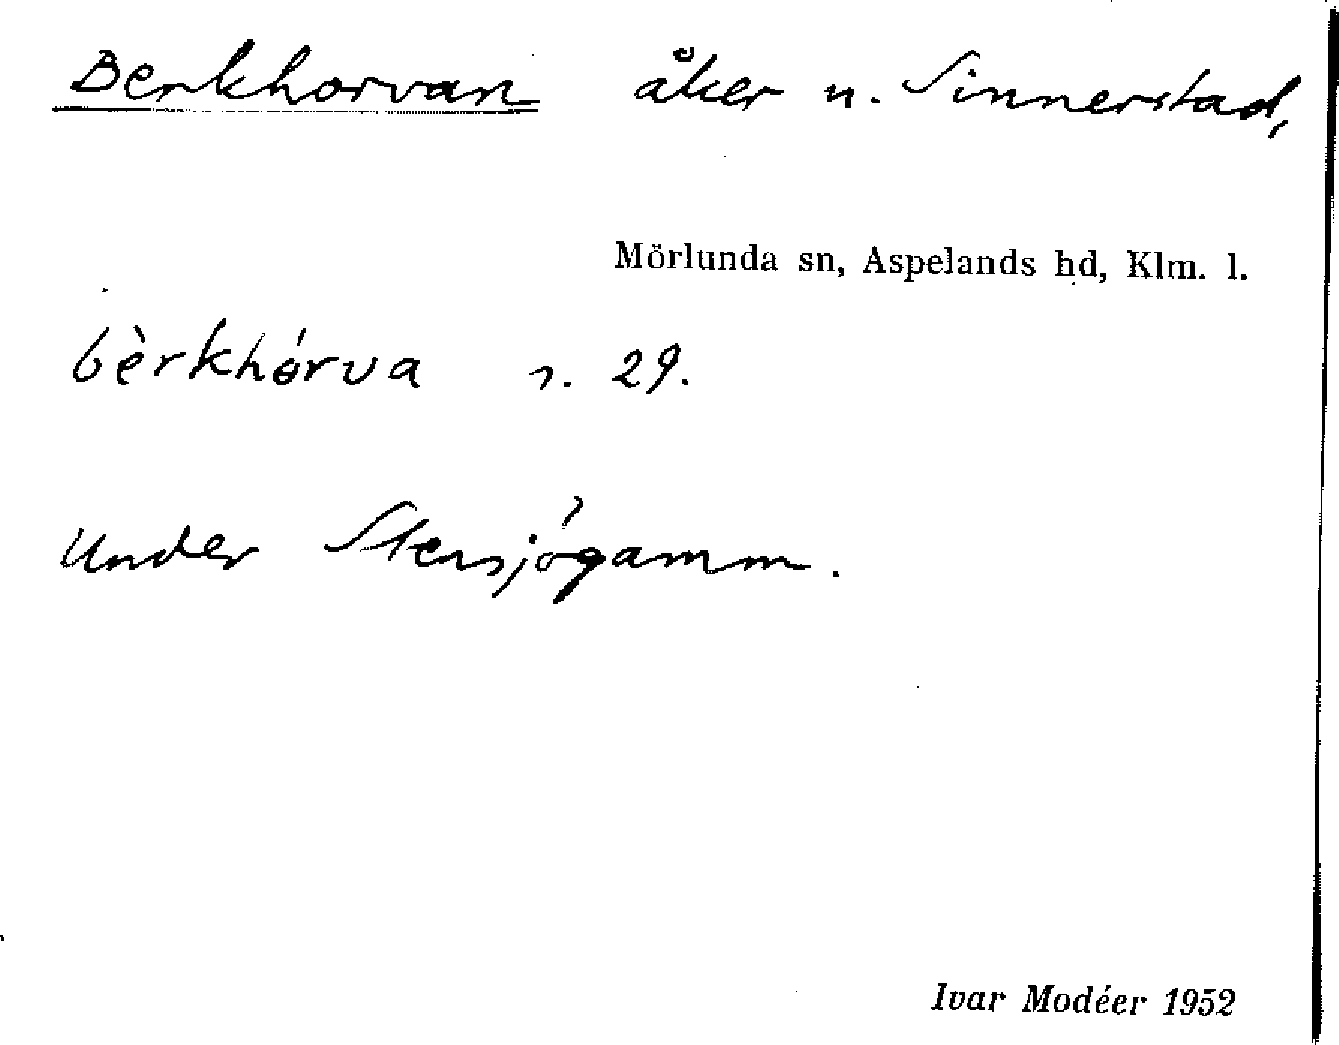 Berkhorvan åker u. Sinnerstad,
Mörlunda sn, Aspelands hd, Klm. l.
bèrkhórva s. 29.
Under Stensjögamm.
Ivar Modéer 1952